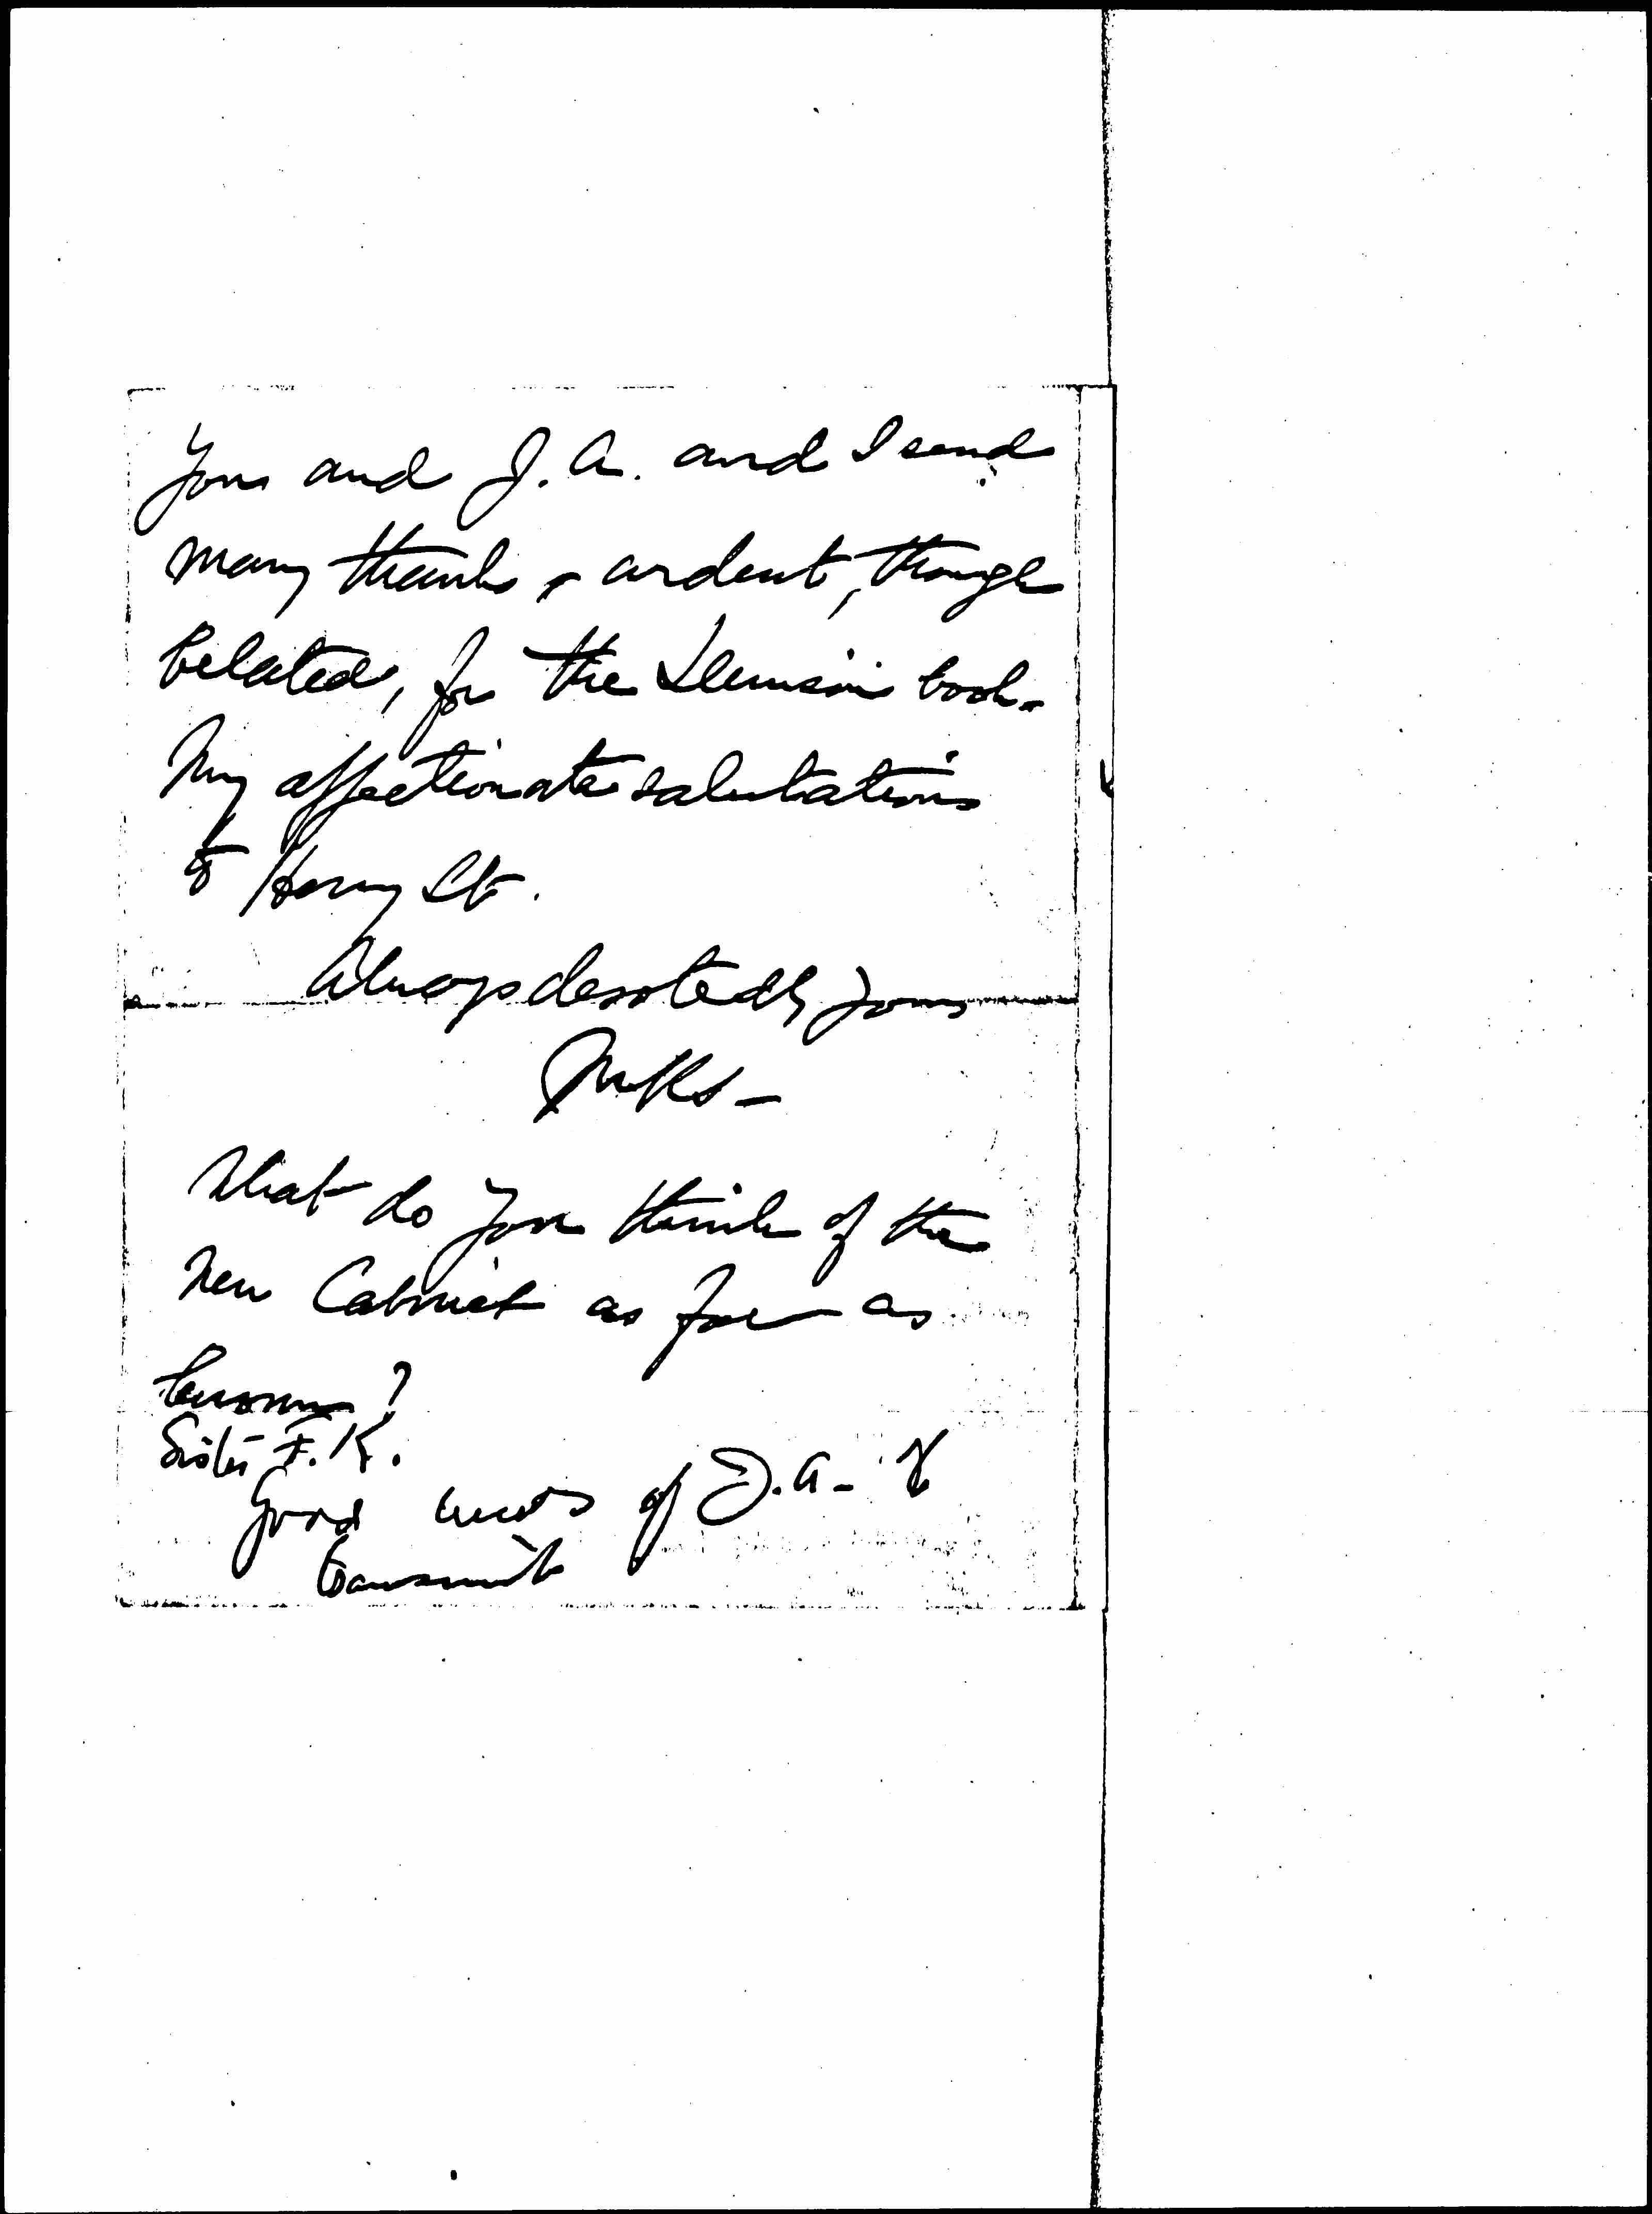 You and J. A. and I send
many thanks, ardent, though
belated, for the book.
My affectionate salutations
to Henry St.
Always devotedly yours
MKS -
What do you think of the
new Cabinet as far as
known?
Sister F. K.
Good news of J. A. - to
transmit